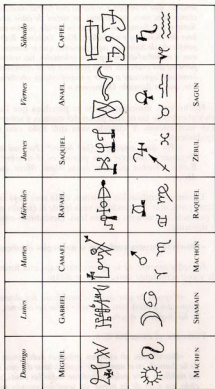 Domingo Lunes Martes Miércoles Jueves Viernes Sábado
MIGUEL GABRIEL CAMAEL RAFAEL SAQUIEL ANAEL CAFIEL
MACHEN SHAMAIN MACHON RAQUIEL ZEBUL SAGUN